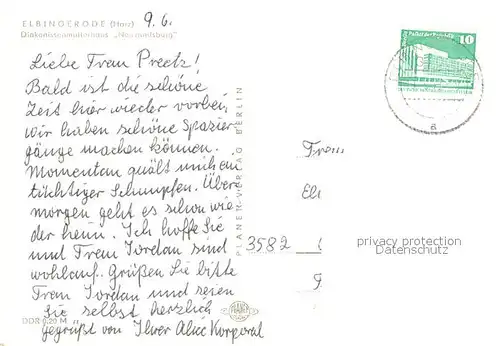 ELBINGERODE (Harz) 9.6.
Diakonissenmutterhaus „Neuvandsburg"
Liebe Frau Preetz!
Bald ist die schöne
Zeit hier wieder vorbei,
wir haben schöne Spazier-
gänge machen können.
Momentan quält mich ein
tüchtiger Schnupfen. Über-
morgen geht es schon wie
der heim. Ich hoffe Sie
und Frau Jordan sind
wohlauf. Grüßen Sie bitte
Frau Jordan und seien
Sie selbst herzlich
gegrüßt von Ihrer Korporal
DDR 0,20 M
PLANER-VERLAG BERLIN
10
a
Frau
3582
privacy protection
Datenschutz